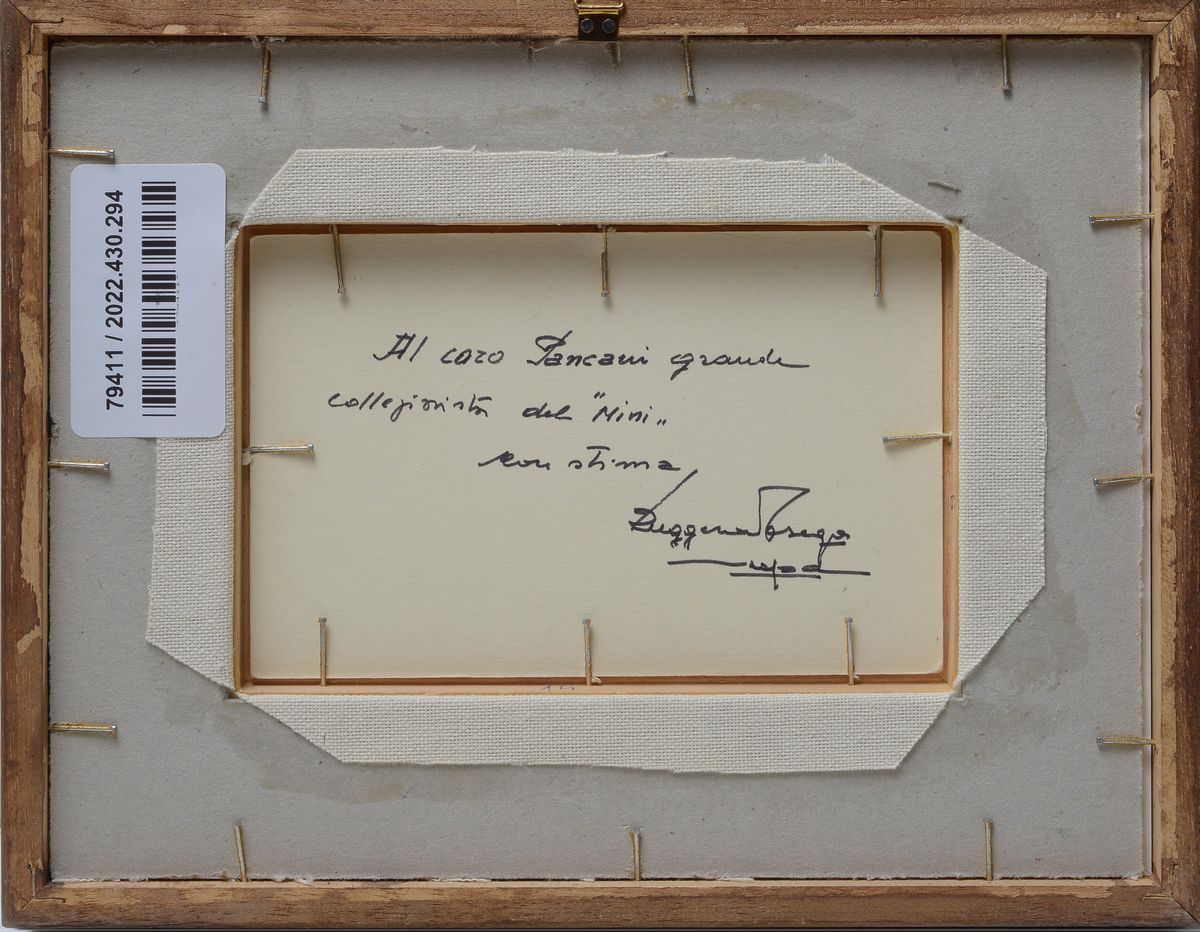 79411 / 2022.430.294
Al caro Pancani grande
collezionista del "Mini"
con stima